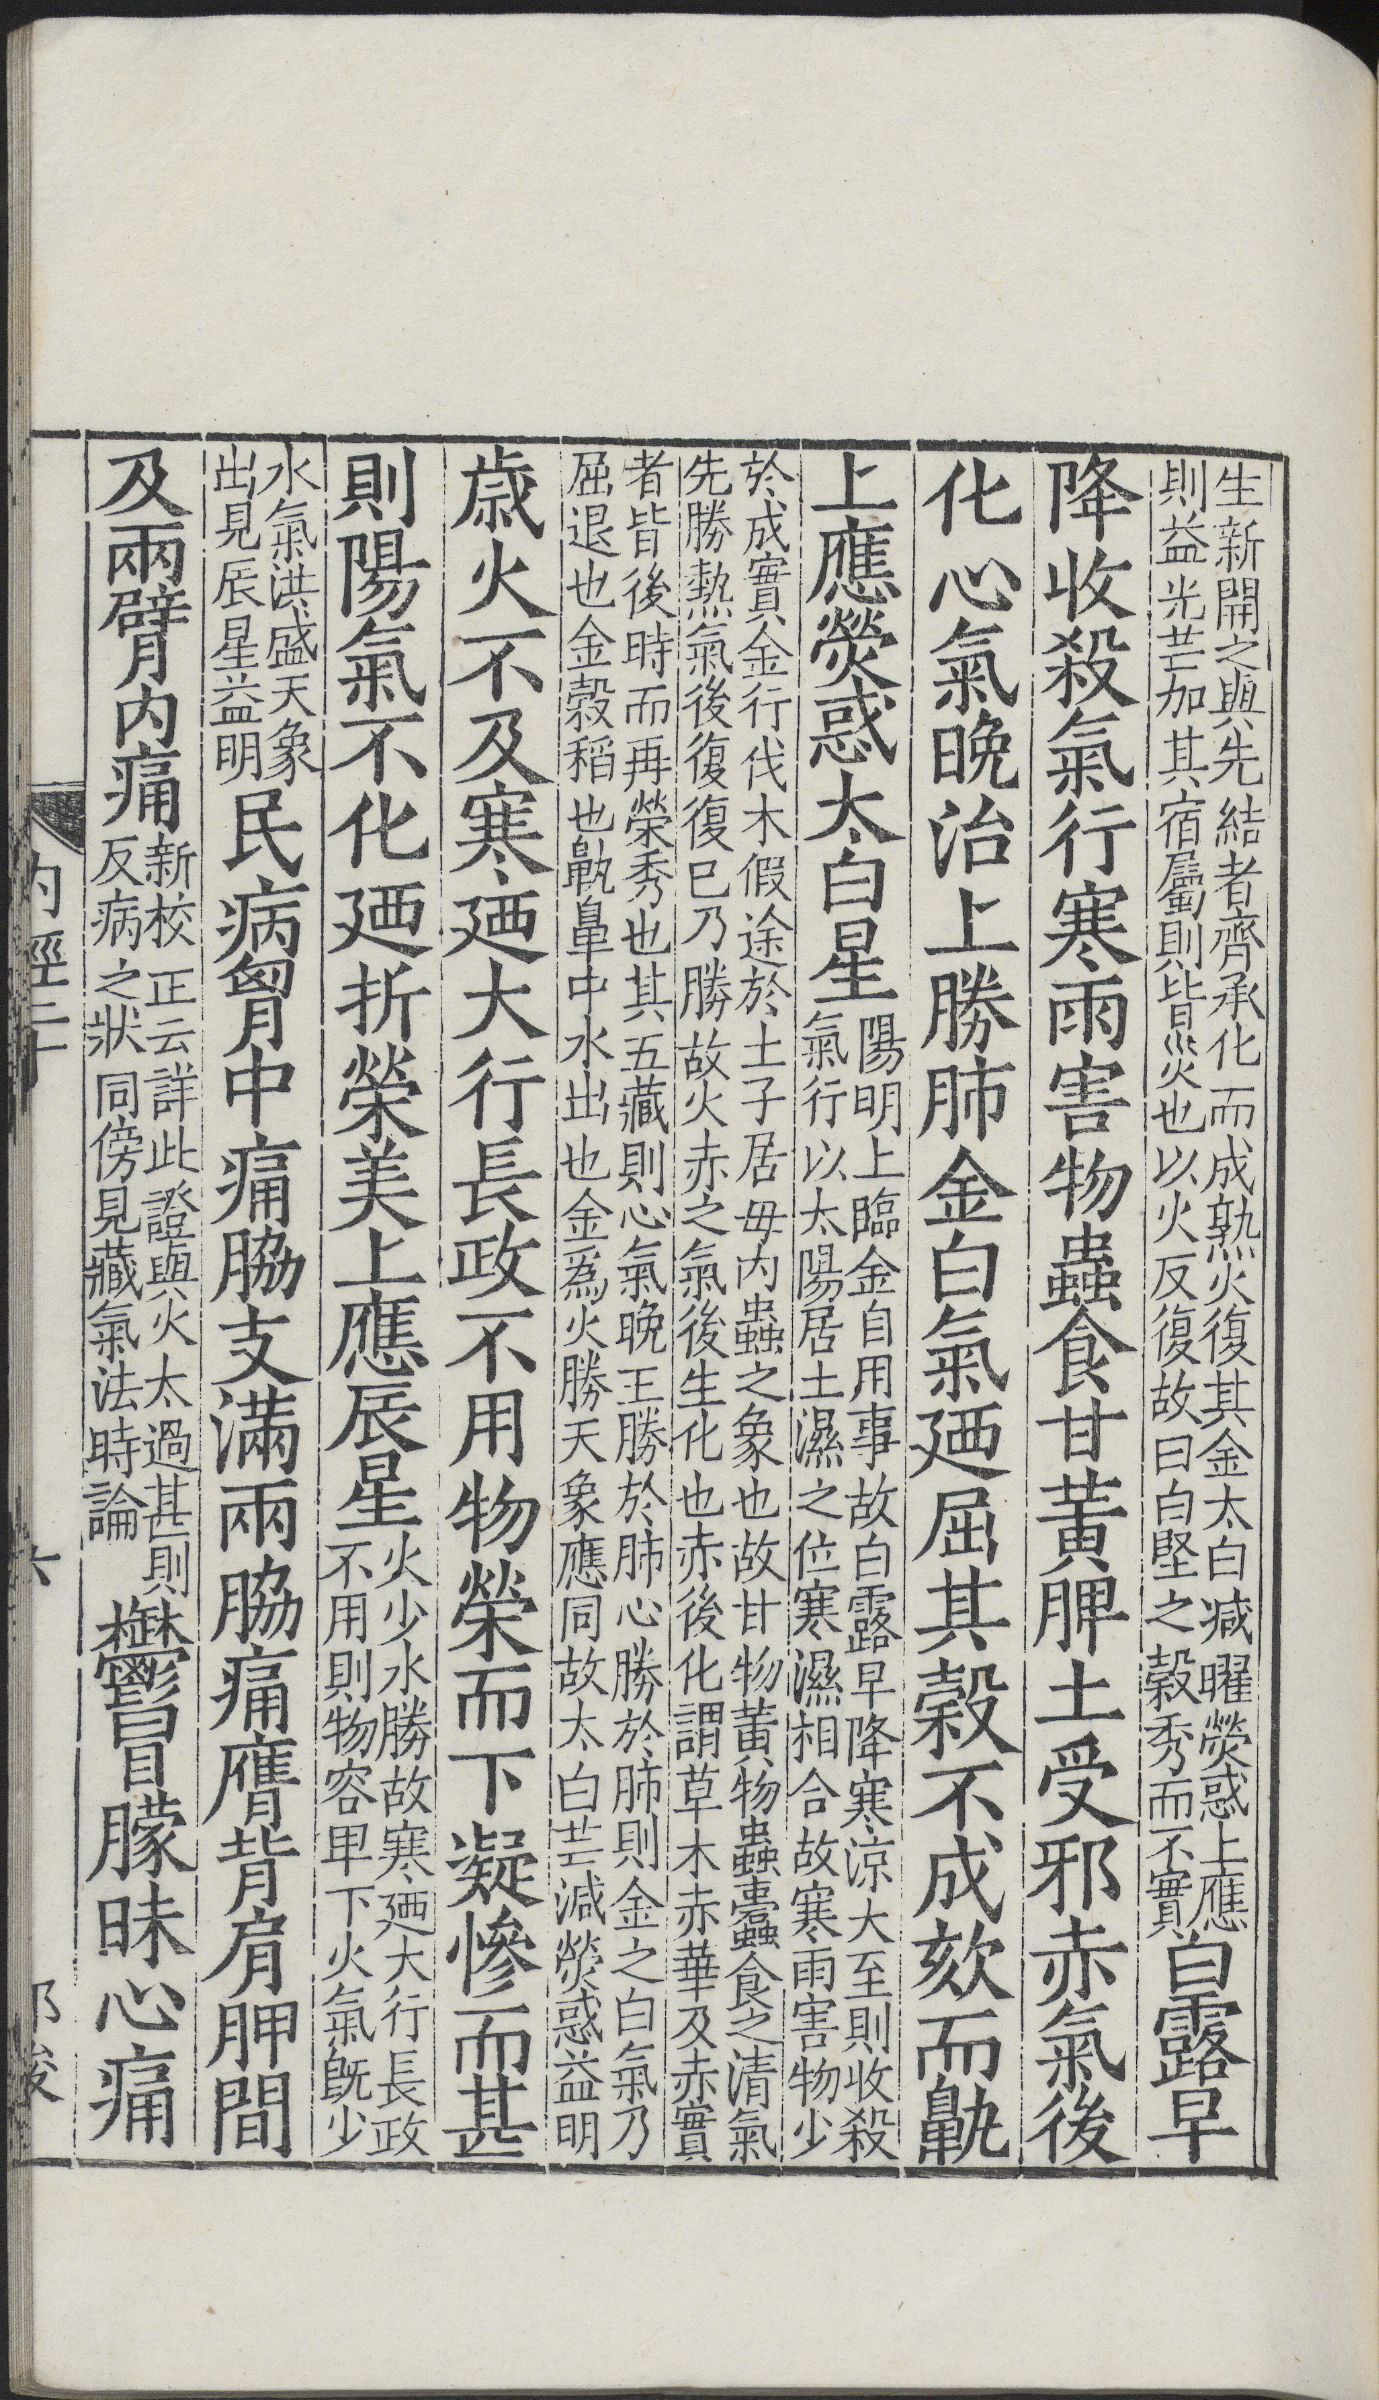 生新開之與先結者齊承化而成熟火復其金太白減曜熒惑上應
則益光芒加其宿屬則皆災也以火反復故曰白堅之穀秀而不實
白露早
降收殺氣行寒雨害物蟲食甘黃脾土受邪赤氣後
化心氣晚治上勝肺金白氣廼屈其穀不成欬而鼽
上應熒惑太白星
陽明上臨金自用事故白露早降寒涼大至則收殺
氣行以太陽居土濕之位寒濕相合故寒雨害物少
於成實金行伐木假途於土子居母內蟲之象也故甘物黃物蟲蠹食之清氣
先勝熱氣後復復已乃勝故火赤之氣後生化也赤後化謂草木赤華及赤實
者皆後時而再榮秀也其五藏則心氣晚王勝於肺心勝於肺則金之白氣乃
屈退也金穀稻也鼽鼻中水出也金為火勝天象應同故太白芒減熒惑益明
歲火不及寒廼大行長政不用物榮而下凝慘而甚
則陽氣不化廼折榮美上應辰星
火少水勝故寒廼大行長政
不用則物容卑下火氣既少
水氣洪盛天象
出見辰星益明
民病胷中痛脇支滿兩脇痛膺背肩胛間
及兩臂內痛
新校正云詳此證與火太過甚則
反病之狀同傍見藏氣法時論
鬱冒朦昧心痛
內經二十
六